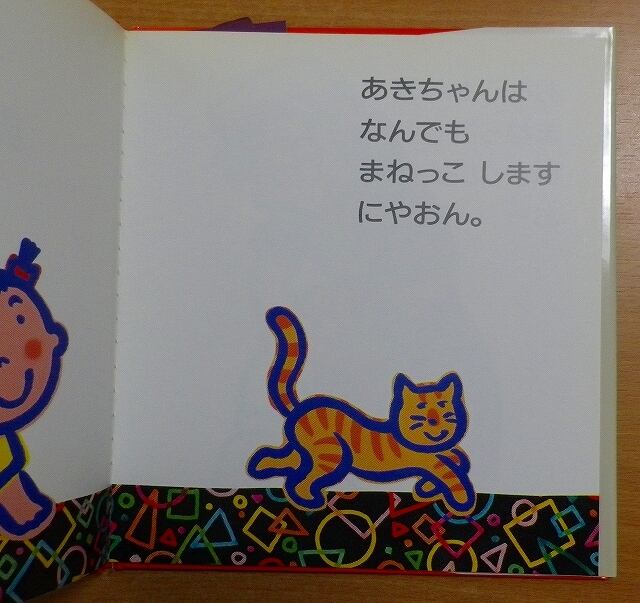 あきちゃんは
なんでも
まねっこ します
にやおん。